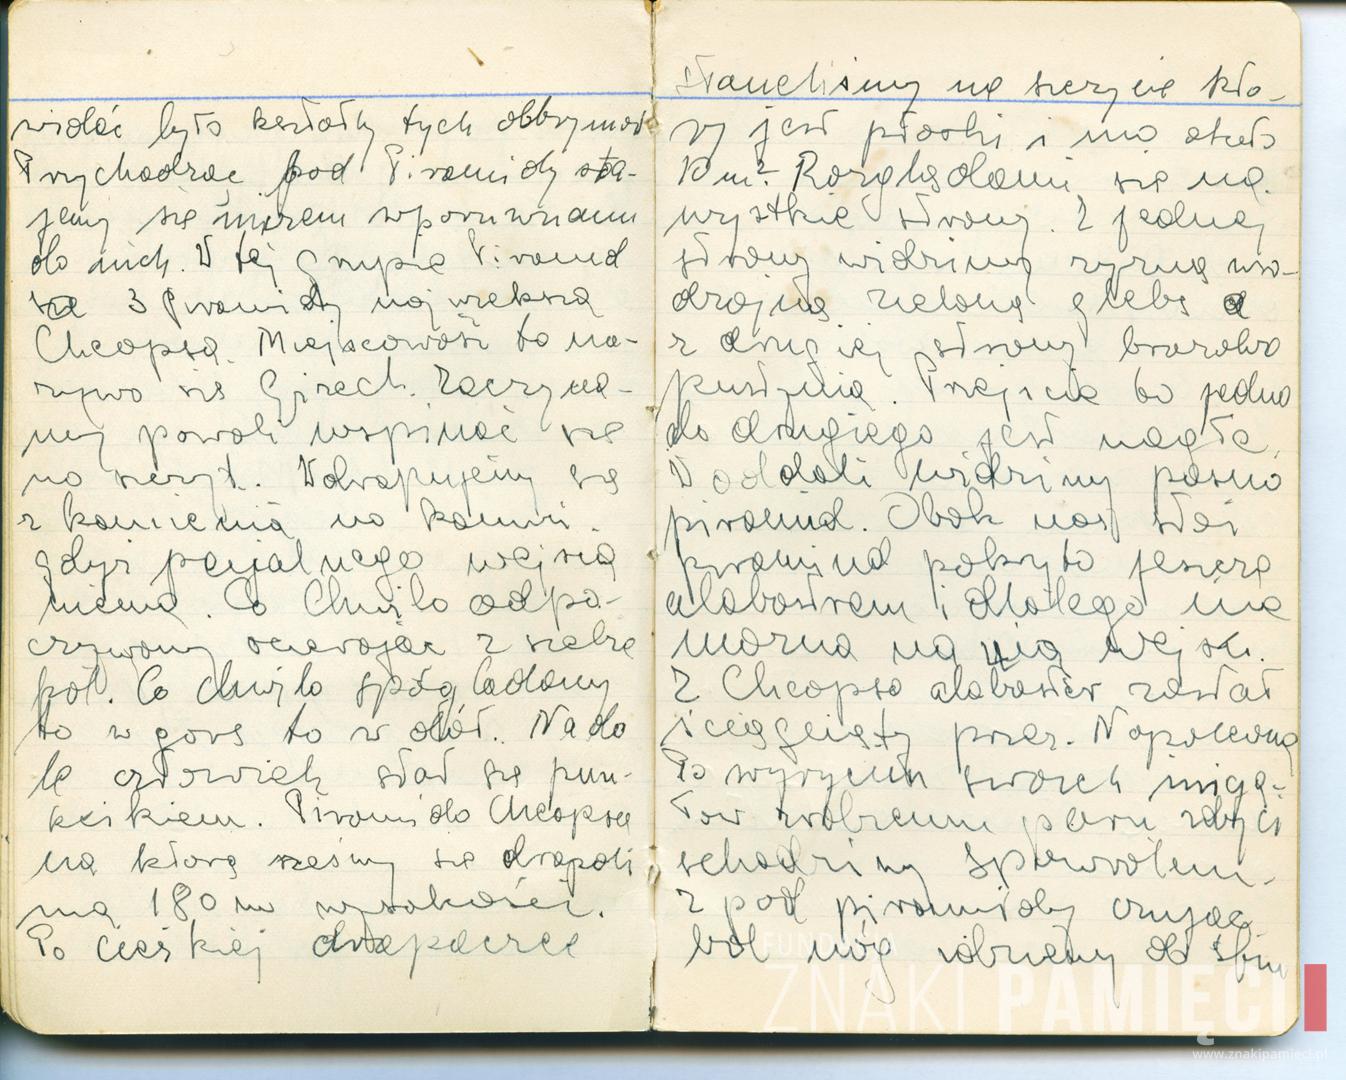 widać było kształty tych olbrzymów
Przychodząc pod Piramidy sta-
jemy się niczem w porównaniu
do nich. W tej grupie Piramid
są 3 Piramidy największa
Cheopsa. Miejscowość ta na-
zywa się Gizech. Zaczyna-
my powoli wspinać się
na szczyt. Wdrapujemy się
z kamienia na kamień.
gdyż specjalnego wejścia
niema. Co chwila odpo-
czywamy ocierając z siebie
pot. Co chwila spoglądamy
to w górę to w dół. Na do
le człowiek stał się pun-
kcikiem. Piramida Cheopsa
na którą żeśmy się drapali
ma 180 m wysokości.
Po ciężkiej drapaczce
Stanęliśmy na szczycie któ-
ry jest płaski i ma około
10 m². Rozglądamy się na
wszystkie strony. Z jednej
strony widzimy żyzną uro-
dzajną zieloną glebę a
z drugiej strony
pustynia. Przejście to jedno
do drugiego jest nagłe.
W oddali widzimy pasmo
piramid. Obok nas stoi
piramida pokryta jeszcze
alabastrem i dlatego nie
można na nią wejść.
Z Cheopsa alabaster został
ściągnięty przez Napoleona
Po wyryciu swoich inicja-
łów zrobieniu paru zdjęć
schodzimy spowrotem.
z pod piramidy czując
ból nóg idziemy do Sfin
FUNDACJA
ZNAKI PAMIĘCI
www.znakipamieci.pl